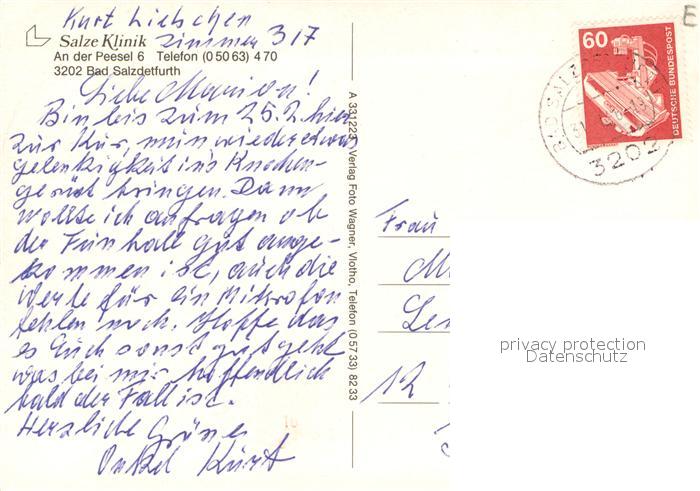 Kurt Liebschen
Salze Klinik Zimmer 317
An der Peesel 6 Telefon (0 50 63) 4 70
3202 Bad Salzdetfurth
Liebe Marion!
Bin bis zum 25.2. hier
zur Kur, nun wieder etwas
gelenkigkeit in's Knochen-
gerüst bringen. Dann
wollte ich anfragen ob
der Funkall gut ange-
kommen ist, auch die
Werte für ein Mikrofon
fehlen noch. Hoffe das
es Euch sonst gut geht
was bei mir hoffendlich
bald der Fall ist.
Herzliche Grüße
Onkel Kurt
A 331223 Verlag Foto Wagner, Vlotho, Telefon (0 57 33) 82 33
E
60
DEUTSCHE BUNDESPOST
BAD SALZ
3202
Frau
M
Le
12
privacy protection
Datenschutz